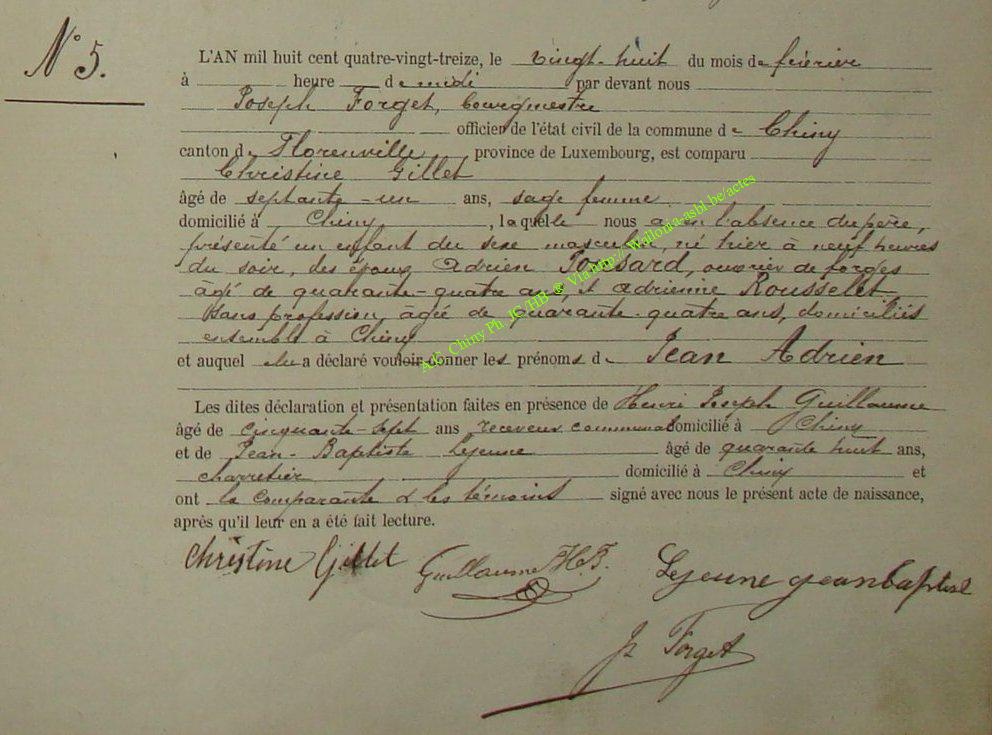 N° 5.
L'AN mil huit cent quatre-vingt-treize, le vingt-huit du mois de février
à heure de midi par devant nous
Joseph Forget, bourgmestre
officier de l'état civil de la commune de Chiny
canton de Florenville province de Luxembourg, est comparu
Christine Gillet
âgé de septante-un ans, sage femme
domicilié à Chiny, laquelle nous a en l'absence du père,
présenté un enfant du sexe masculin, né hier à neuf heures
du soir, des époux Adrien, ouvrier de forges
âgé de quarante-quatre ans, et Adrienne Rousselet
sans profession, âgée de quarante-quatre ans, domiciliés
ensemble à Chiny
et auquel elle a déclaré vouloir donner les prénoms de Jean Adrien
Les dites déclaration et présentation faites en présence de Henri Joseph Guillaume
âgé de cinquante-sept ans receveur communal domicilié à Chiny
et de Jean-Baptiste Lejeune âgé de quarante huit ans,
charretier domicilié à Chiny et
ont la comparante & les témoins signé avec nous le présent acte de naissance,
après qu'il leur en a été fait lecture.
Christine Gillet Guillaume H.J. Lejeune jean baptise
J. Forget
A.C. Chiny Ph. JC/HB @ Via http://Wallonia-asbl.be/actes